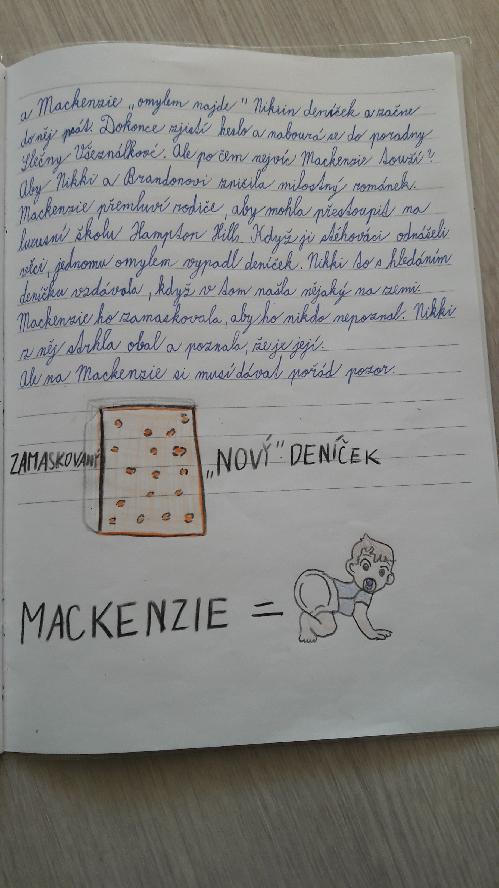 a Mackenzie „omylem najde" Nikiin deníček a začne
do něj psát. Dokonce zjistí heslo a nabourá se do poradny
Slečny Všeználkové. Ale po čem nejvíc Mackenzie touží?
Aby Nikki a Brandonovi zničila milostný románek.
Mackenzie přemluví rodiče, aby mohla přestoupit na
luxusní školu Hampton Hills. Když ji stěhováci odnášeli
věci, jednomu omylem vypadl deníček. Nikki to s hledáním
deníčku vzdávala, když v tom našla nějaký na zemi.
Mackenzie ho zamaskovala, aby ho nikdo nepoznal. Nikki
z něj strhla obal a poznala, že je její.
Ale na Mackenzie si musí dávat pořád pozor.
ZAMASKOVANÝ „NOVÝ" DENÍČEK
MACKENZIE =